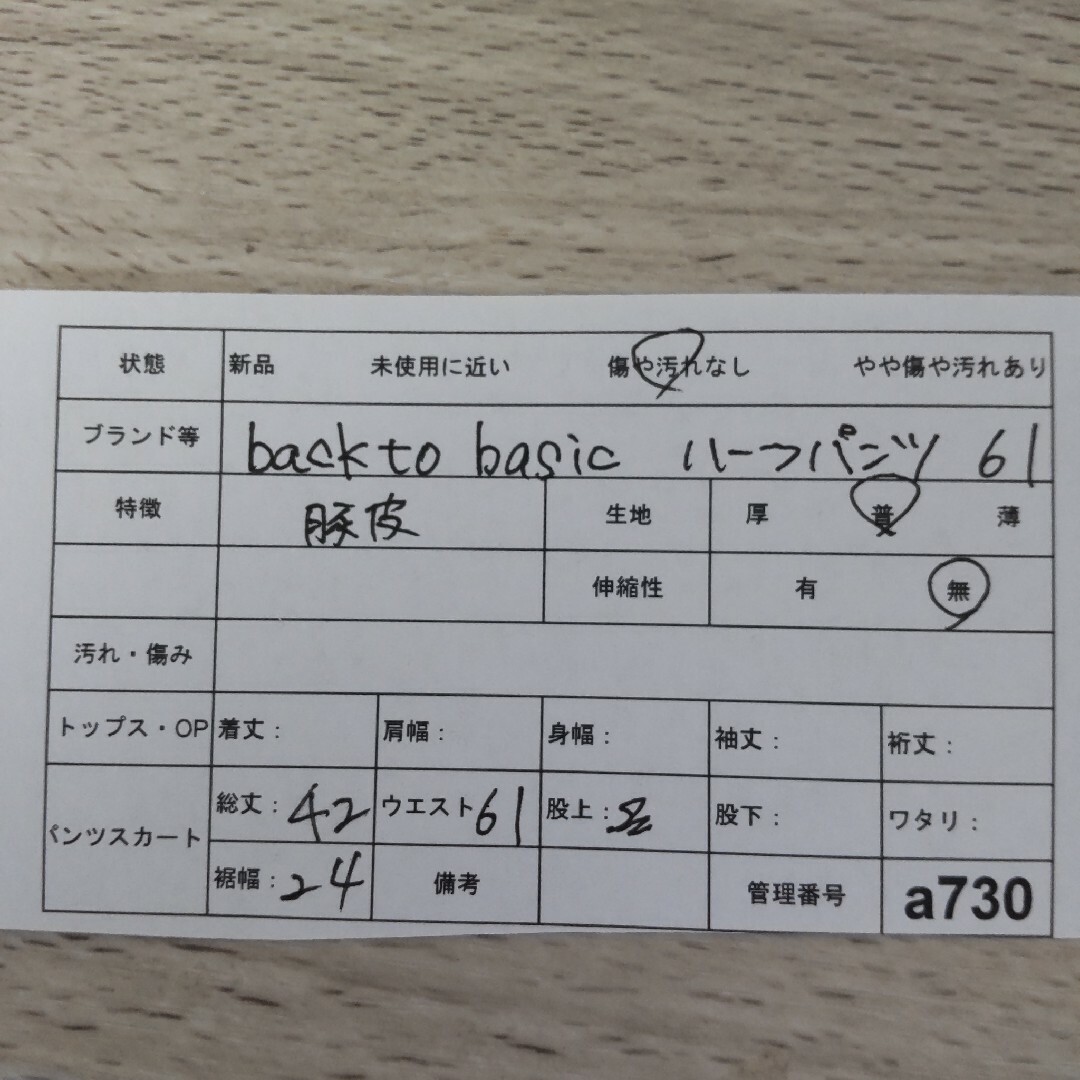 状態 新品 未使用に近い 傷や汚れなし やや傷や汚れあり
ブランド等 back to basic ハーフパンツ 61
特徴 豚皮 生地 厚 普 薄
伸縮性 有 無
汚れ・傷み
トップス・OP 着丈: 肩幅: 身幅: 袖丈: 裄丈:
パンツスカート 総丈: 42 ウエスト 61 股上: 股下: ワタリ:
裾幅: 24 備考 管理番号 a730